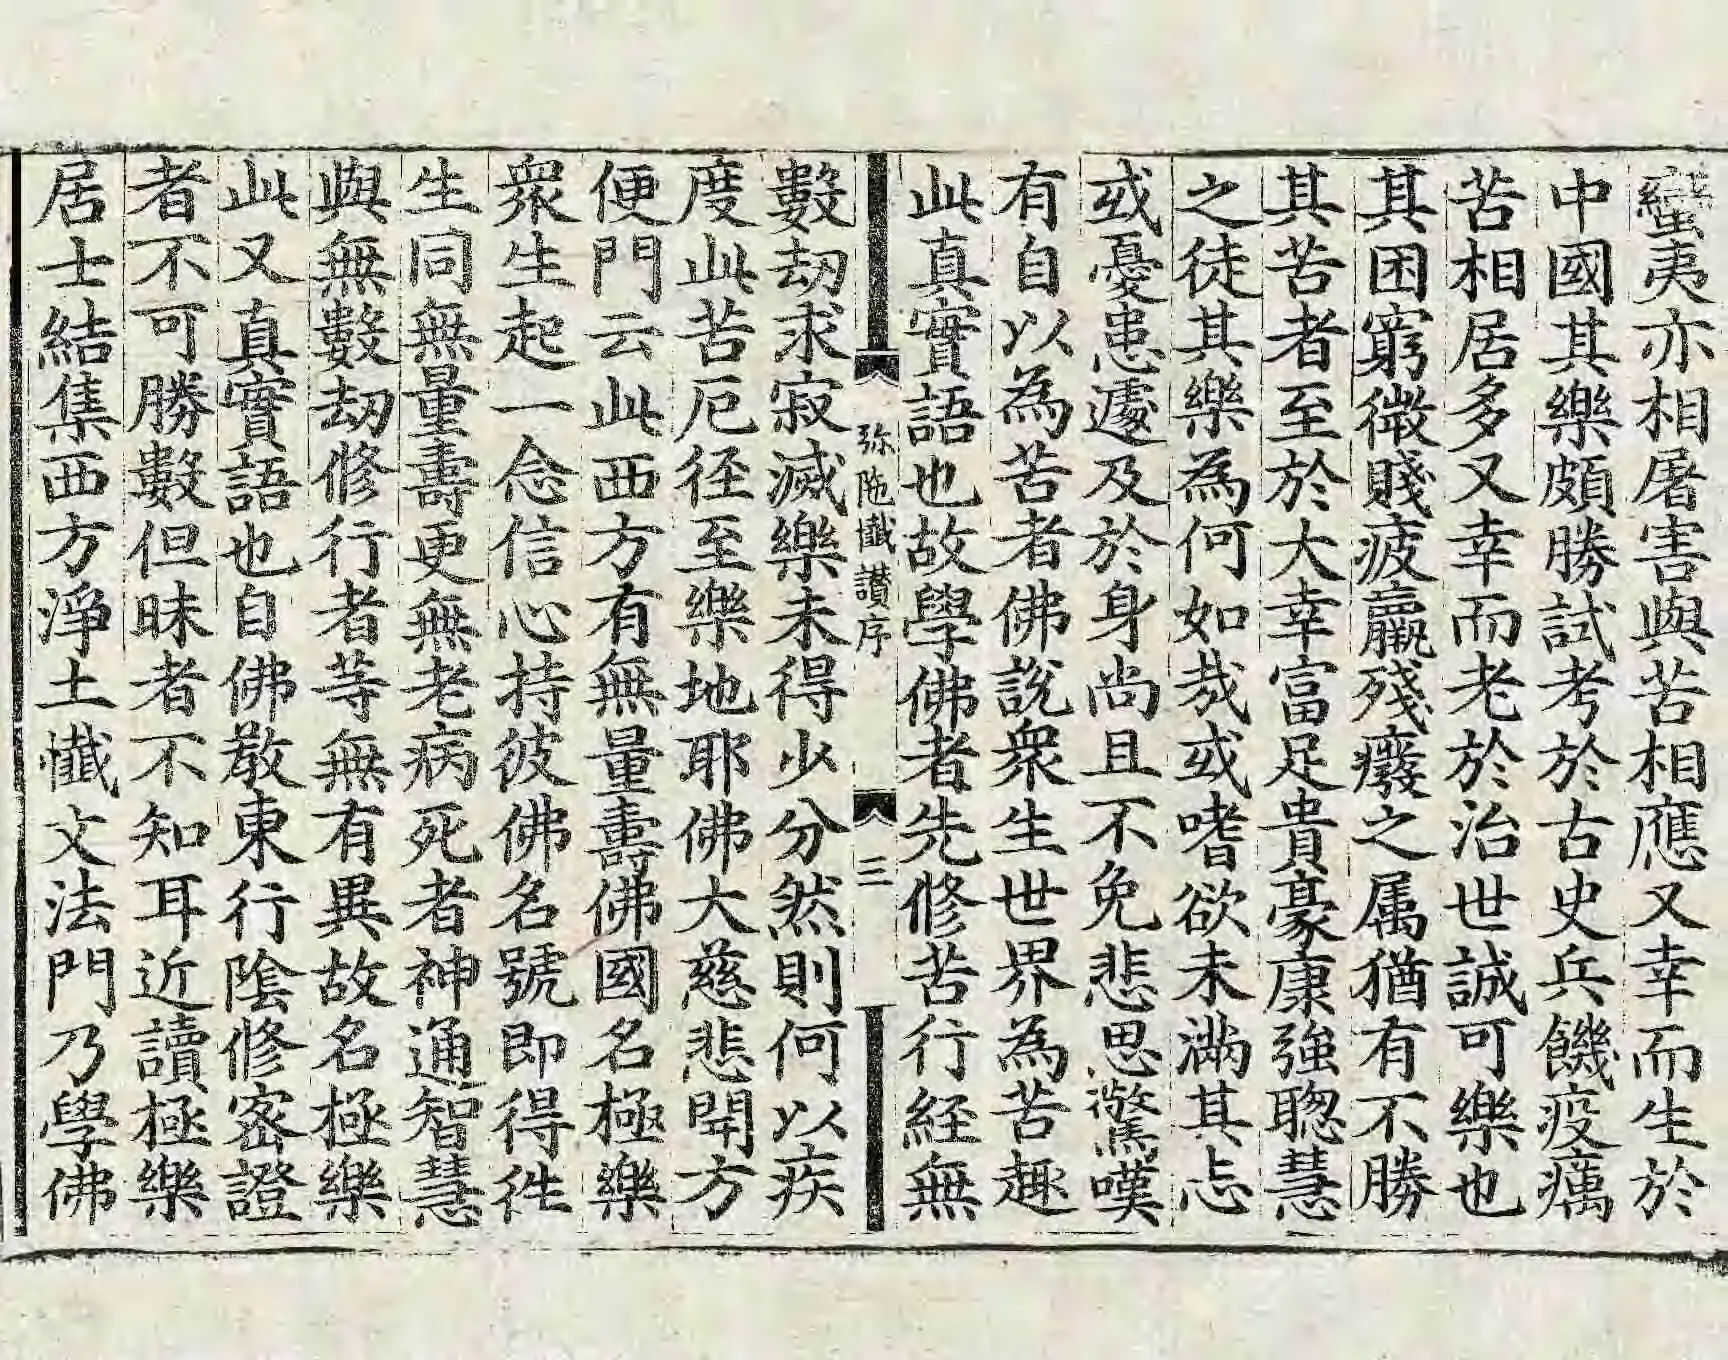 蠻夷亦相屠害與苦相應又幸而生於
中國其樂頗勝試考於古史兵饑疫癘
苦相居多又幸而老於治世誠可樂也
其困窮微賤疲羸殘癈之属猶有不勝
其苦者至於大幸富足貴豪康強聡慧
之徒其樂為何如㢤或嗜欲未滿其忘
或憂患遽及於身尚且不免悲思驚嘆
有自以為苦者佛說衆生世界為苦趣
此真實語也故學佛者先修苦行経無
弥陁懺讃序
三
數劫求寂滅樂未得少分然則何以疾
度此苦厄径至樂地耶佛大慈悲開方
便門云此西方有無量壽佛國名極樂
衆生起一念信心持彼佛名號即得徃
生同無量壽更無老病死者神通智慧
與無數劫修行者等無有異故名極樂
此又真實語也自佛教東行陰修密證
者不可勝數但昧者不知耳近讀極樂
居士結集西方淨土懺文法門乃學佛